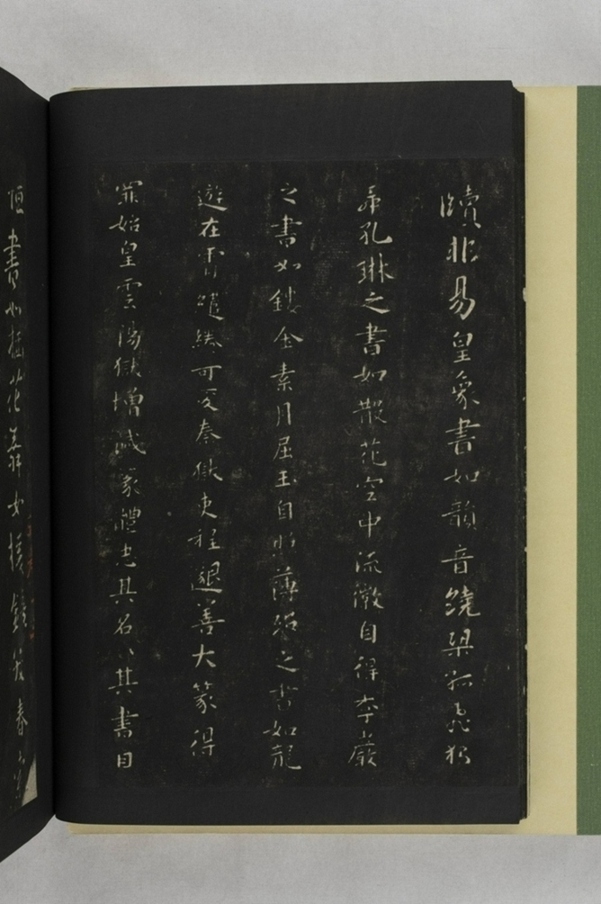 牘非易皇象書如韻音繞梁孤飛獨
舞孔琳之書如散花空中流徽自得李巖
之書如鏤金素月屈玉自照薄紹之書如龍
遊在霄繾綣可愛秦獄吏程邈善大篆得
罪始皇雲陽獄增減篆體其名其書曰
恒書如插花舞女援鏡笑春